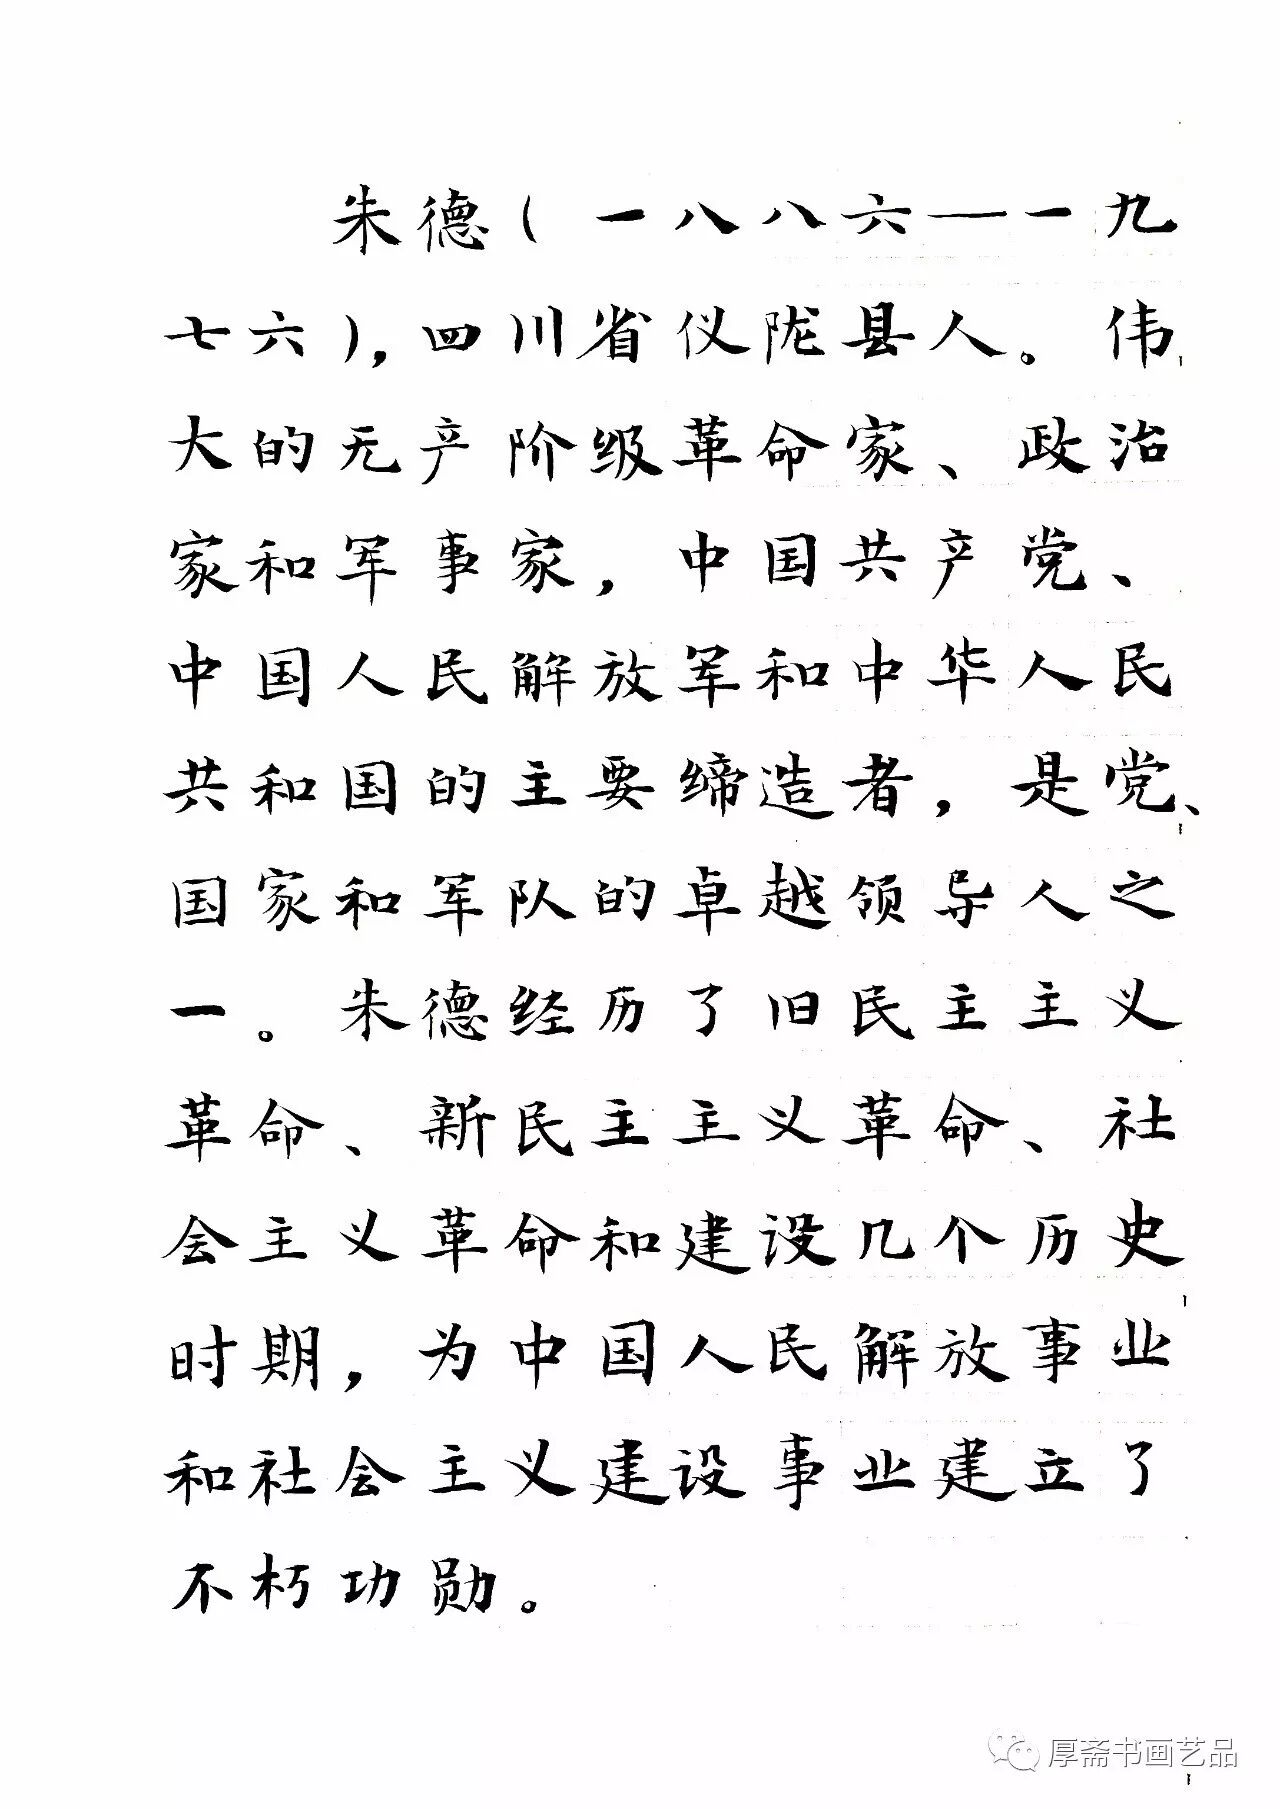 朱德(一八八六——一九
七六),四川省仪陇县人。伟
大的无产阶级革命家、政治
家和军事家,中国共产党、
中国人民解放军和中华人民
共和国的主要缔造者,是党、
国家和军队的卓越领导人之
一。朱德经历了旧民主主义
革命、新民主主义革命、社
会主义革命和建设几个历史
时期,为中国人民解放事业
和社会主义建设事业建立了
不朽功勋。
厚斋书画艺品